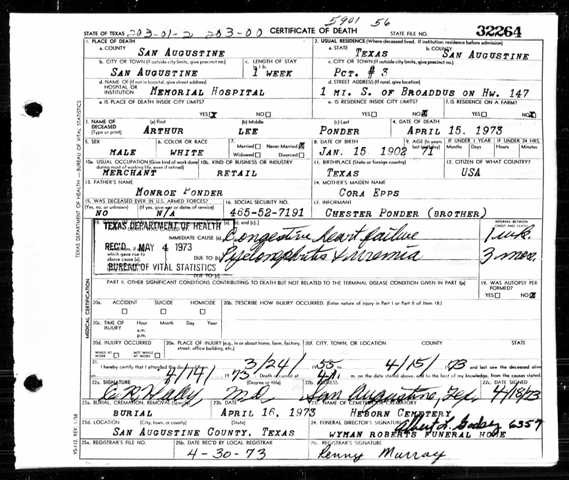 5901 56
STATE OF TEXAS 203-01-2 203-00 CERTIFICATE OF DEATH STATE FILE NO. 32264
1. PLACE OF DEATH 2. USUAL RESIDENCE (Where deceased lived. If institution: residence before admission)
a. COUNTY SAN AUGUSTINE a. STATE TEXAS b. COUNTY SAN AUGUSTINE
b. CITY OR TOWN (If outside city limits, give precinct no.) c. LENGTH OF STAY c. CITY OR TOWN (If outside city limits, give precinct no.)
SAN AUGUSTINE 1 WEEK PCT. # 3
d. NAME OF (If not in hospital, give street address) d. STREET ADDRESS (If rural, give location)
HOSPITAL OR INSTITUTION MEMORIAL HOSPITAL 1 MI. S. OF BROADDUS ON HW. 147
e. IS PLACE OF DEATH INSIDE CITY LIMITS? e. IS RESIDENCE INSIDE CITY LIMITS? f. IS RESIDENCE ON A FARM?
YES NO YES NO YES NO
3. NAME OF DECEASED (a) First (b) Middle (c) Last 4. DATE OF DEATH
ARTHUR LEE PONDER APRIL 15, 1973
5. SEX 6. COLOR OR RACE 7. Married Never Married 8. DATE OF BIRTH 9. AGE
MALE WHITE Widowed Divorced JAN. 15 1902 71
10a. USUAL OCCUPATION 10b. KIND OF BUSINESS OR INDUSTRY 11. BIRTHPLACE (State or foreign country) 12. CITIZEN OF WHAT COUNTRY?
MERCHANT RETAIL TEXAS USA
13. FATHER'S NAME 14. MOTHER'S MAIDEN NAME
MONROE PONDER CORA EPPS
15. WAS DECEASED EVER IN U.S. ARMED FORCES? 16. SOCIAL SECURITY NO. 17. INFORMANT
NO N/A 465-52-7191 CHESTER PONDER (BROTHER)
TEXAS DEPARTMENT OF HEALTH
IMMEDIATE CAUSE (a) Congestive heart failure 1 wk.
REC'D MAY 4 1973
DUE TO (b) Pyelonephritis & uremia 3 mos.
BUREAU OF VITAL STATISTICS DUE TO (c)
PART II. OTHER SIGNIFICANT CONDITIONS CONTRIBUTING TO DEATH BUT NOT RELATED TO THE TERMINAL DISEASE CONDITION GIVEN IN PART I(a) 19. WAS AUTOPSY PERFORMED?
YES NO
20a. ACCIDENT SUICIDE HOMICIDE 20b. DESCRIBE HOW INJURY OCCURRED. (Enter nature of injury in Part I or Part II of item 18.)
20c. TIME OF INJURY Hour Month Day Year
a.m.
p.m.
20d. INJURY OCCURRED 20e. PLACE OF INJURY (e.g., in or about home, farm, factory, street, office building, etc.) 20f. CITY, TOWN, OR LOCATION COUNTY STATE
21. I hereby certify that I attended the deceased from 3/24/ 55 4/15/ 73
4/14/ 73 Death occurred at m. on the date stated above, and to the best of my knowledge, from the causes stated
22a. SIGNATURE (Degree or title) 22b. ADDRESS 22c. DATE SIGNED
C. R. Haley MD San Augustine, Tex. 4/18/73
23a. BURIAL, CREMATION, REMOVAL 23b. DATE 23c. NAME OF CEMETERY
BURIAL APRIL 16, 1973 HEBORN CEMETERY
23d. LOCATION (City, town, or county) (State) 24. FUNERAL DIRECTOR'S SIGNATURE 6357
SAN AUGUSTINE COUNTY, TEXAS WYMAN ROBERTS FUNERAL HOME
25a. REGISTRAR'S FILE NO. 25b. DATE REC'D BY LOCAL REGISTRAR REGISTRAR'S SIGNATURE
4-30-73 Penny Murray
TEXAS DEPARTMENT OF HEALTH — BUREAU OF VITAL STATISTICS
MEDICAL CERTIFICATION